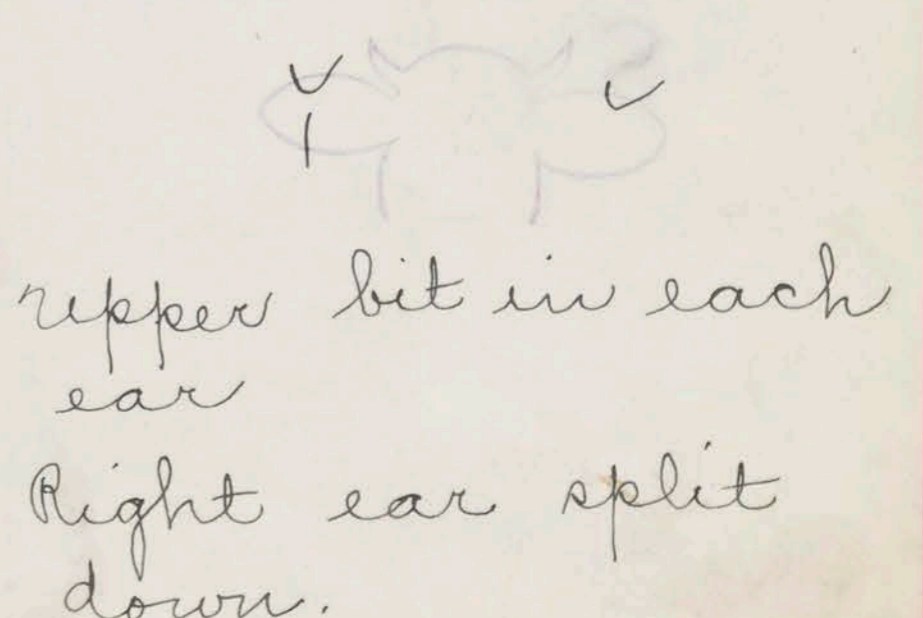 Upper bit in each
ear
Right ear split
down.